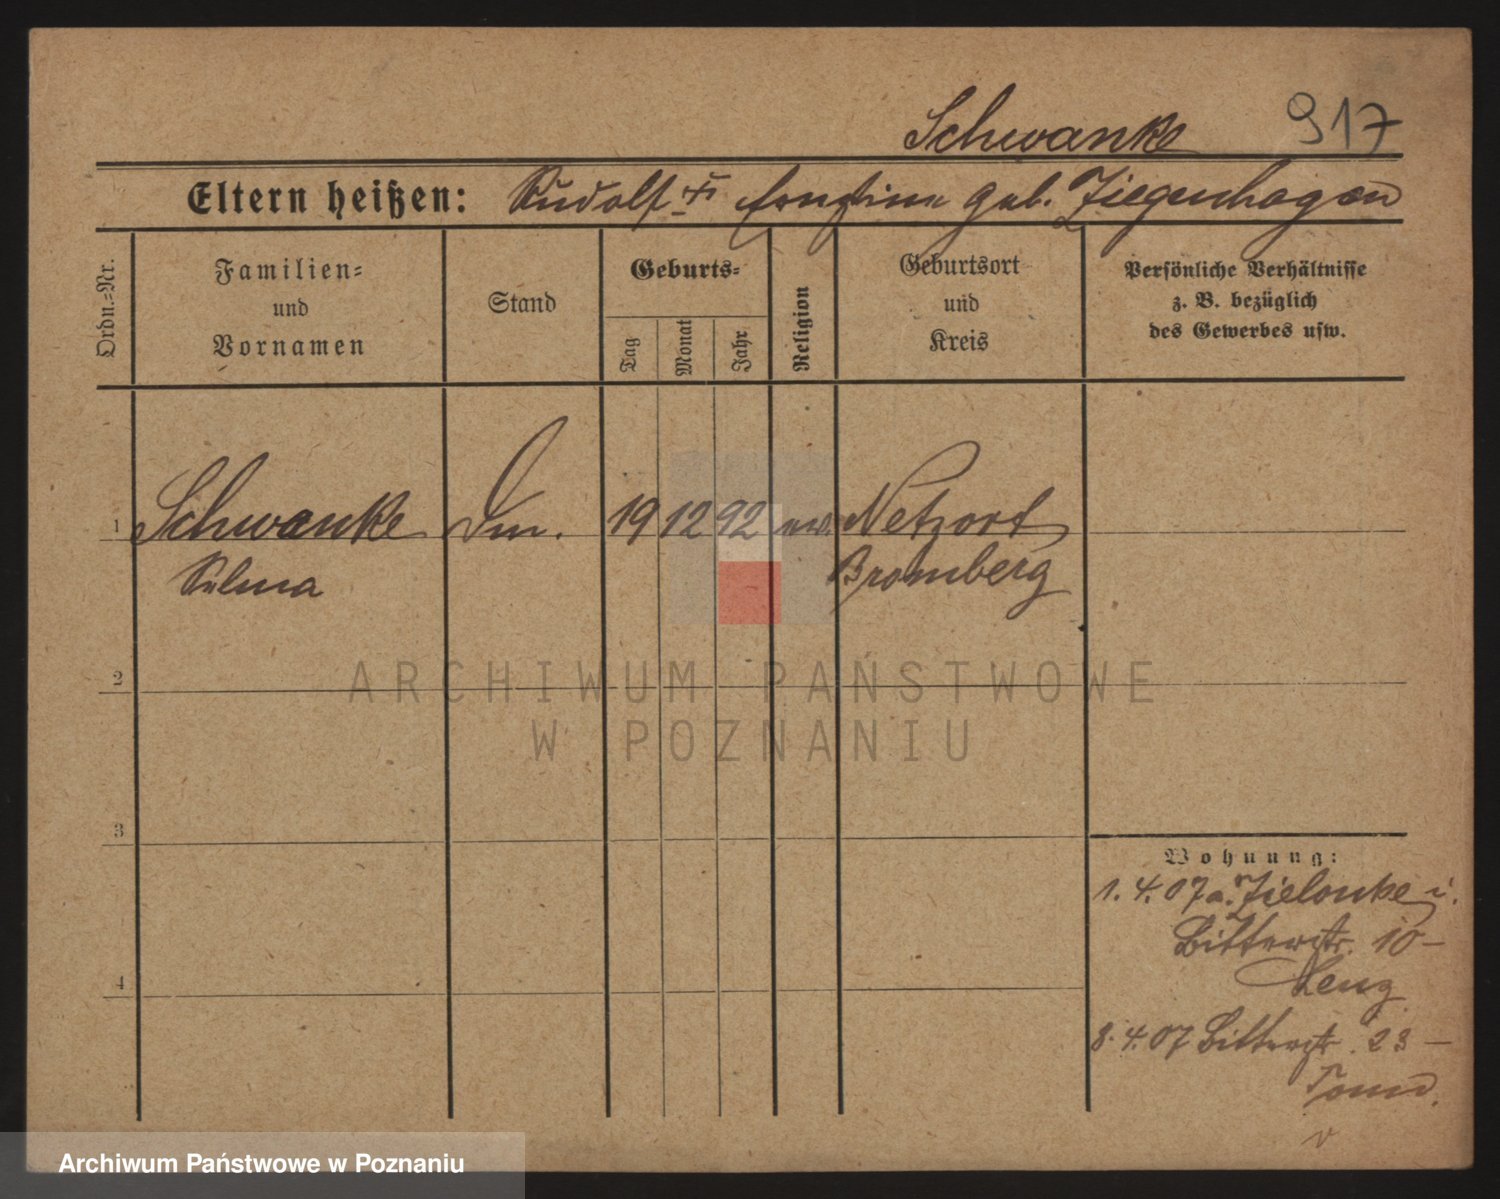 Schwanke 917
Eltern heißen: Rudolf u. Ernstine geb. Ziegenhagen
Ordn.=Nr.
Familien=
und
Vornamen
Stand
Geburts=
Tag
Monat
Jahr
Religion
Geburtsort
und
Kreis
Persönliche Verhältnisse
z. B. bezüglich
des Gewerbes usw.
1 Schwanke Dm. 19 12 92 ev. Netzort
Selma Bromberg
2
3
4
Wohnung:
1.4.07 a. Zielonke i.
Bitterstr. 10 –
8.4.07 Bitterstr. 23 –
ARCHIWUM PAŃSTWOWE
W POZNANIU
Archiwum Państwowe w Poznaniu